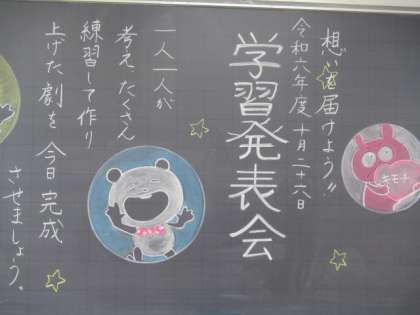 想いを届けよう!!
令和六年度 十月二十六日
学習発表会
一人一人が
考え、たくさん
練習して作り
上げた劇を 今日 完成
させましょう。
キモチ